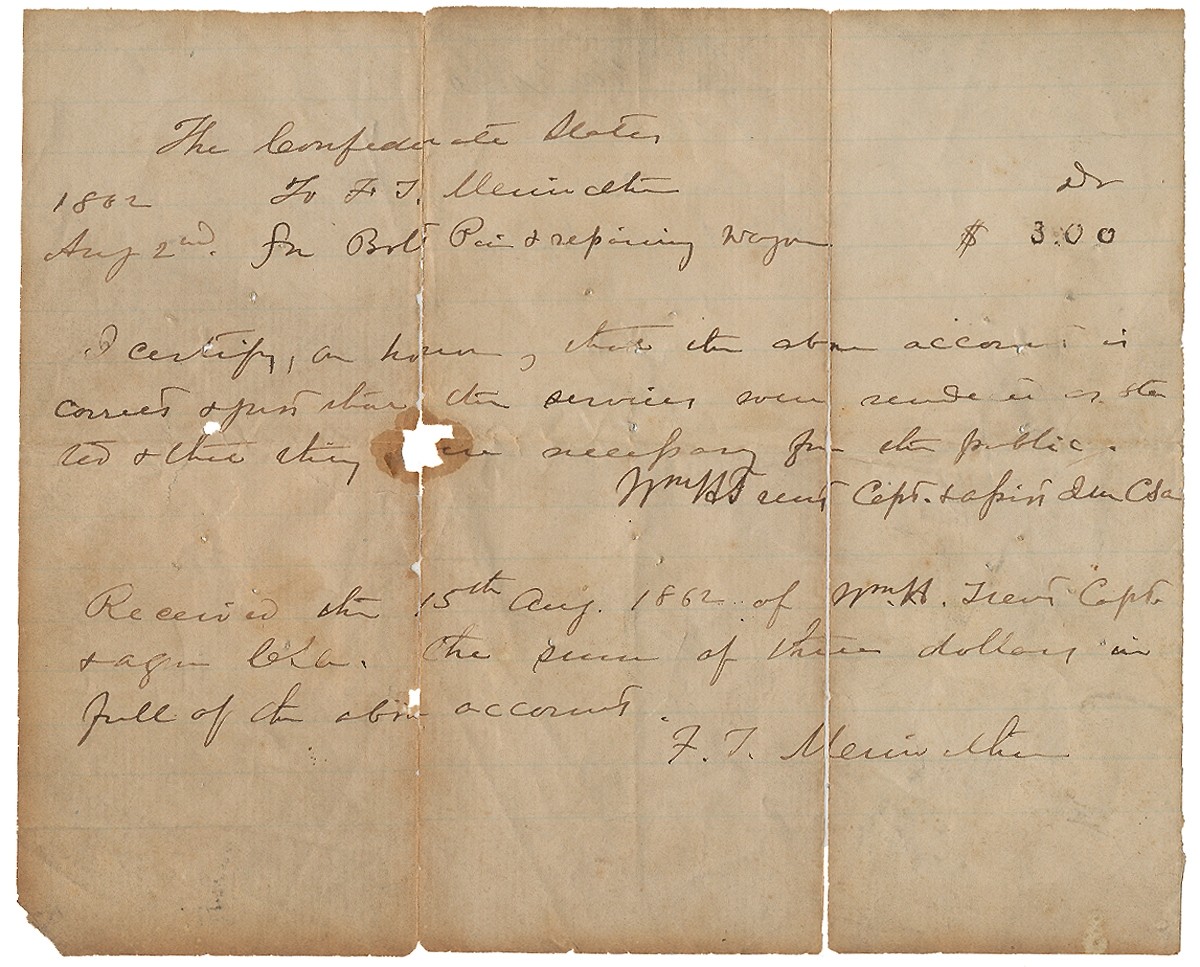 The Confederate States
1862 To F. T. Meriwether Dr
Aug 2nd. for Bolt Pin & repairing Wagon $ 3.00
I certify, on honor, that the above account is
correct & just that the services were rendered as sta
ted & that they were necessary for the public.
Wm H Trent Capt. & assist Qm CSa
Received the 15th Aug. 1862 of Wm H. Trent Capt.
& aqm CSa. the sum of three dollars in
full of the above account.
F. T. Meriwether